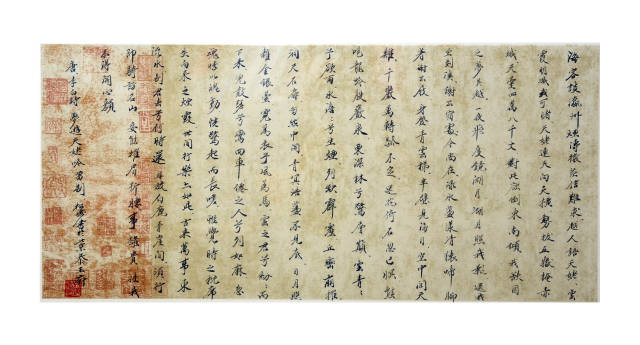 海客談瀛洲煙濤微茫信難求越人語天姥雲
霞明滅或可睹天姥連天向天橫勢拔五嶽掩赤
城天臺四萬八千丈對此欲倒東南傾我欲因
之夢吳越一夜飛度鏡湖月湖月照我影送我
至剡溪謝公宿處今尚在淥水蕩漾清猿啼腳
著謝公屐身登青雲梯半壁見海日空中聞天
雞千巖萬轉路不定迷花倚石忽已暝熊
咆龍吟殷巖泉慄深林兮驚層巔雲青青
兮欲雨水澹澹兮生煙列缺霹靂丘巒崩摧
洞天石扉訇然中開青冥浩蕩不見底日月照
耀金銀臺霓為衣兮風為馬雲之君兮紛紛而
下來虎鼓瑟兮鸞回車仙之人兮列如麻忽
魂悸以魄動怳驚起而長嗟惟覺時之枕席
失向來之煙霞世間行樂亦如此古來萬事東
流水別君去兮何時還且放白鹿青崖間須行
即騎訪名山安能摧眉折腰事權貴使我
不得開心顏
唐李白詩夢遊天姥吟留別